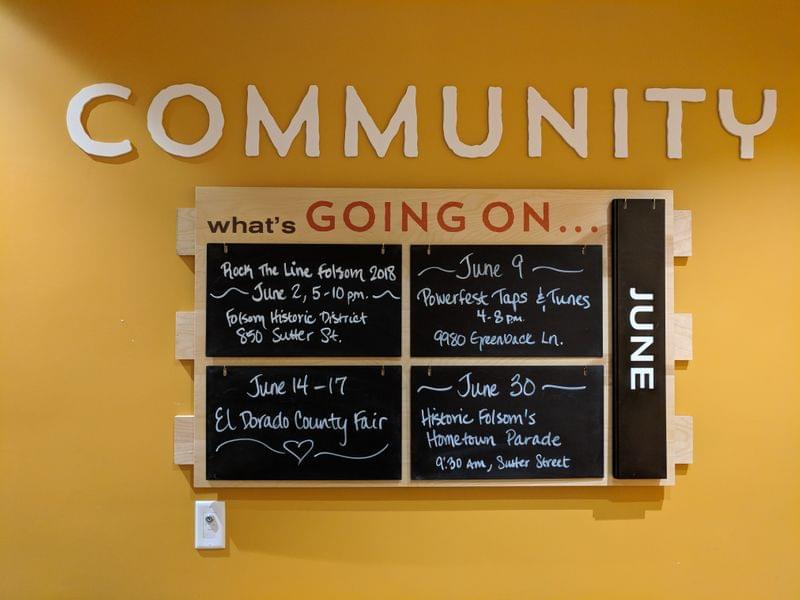 COMMUNITY
what's GOING ON...
Rock The Line Folsom 2018
June 2, 5-10 pm.
Folsom Historic District
850 Sutter St.
June 9
Powerfest Taps & Tunes
4-8 p.m.
9980 Greenback Ln.
June 14-17
El Dorado County Fair
June 30
Historic Folsom's
Hometown Parade
9:30 AM, Sutter Street
JUNE